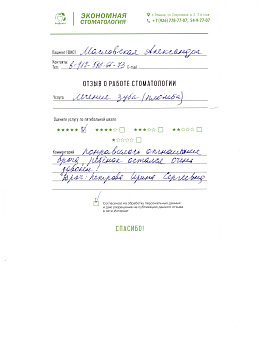 ЭКОНОМНАЯ
СТОМАТОЛОГИЯ
Вашe ФИО Масловская Александра
Контакты:
Тел. E-mail
ОТЗЫВ О РАБОТЕ СТОМАТОЛОГИИ
Услуга лечение зуба (пломба)
Оцените услугу по пятибальной шкале:
Комментарий понравилось отношение
врача, ребёнок остался очень
доволен!
Врач: Петрова Ирина Сергеевна
Согласие на обработку персональных данных
и даю разрешение на публикацию данного отзыва
в сети Интернет
СПАСИБО!